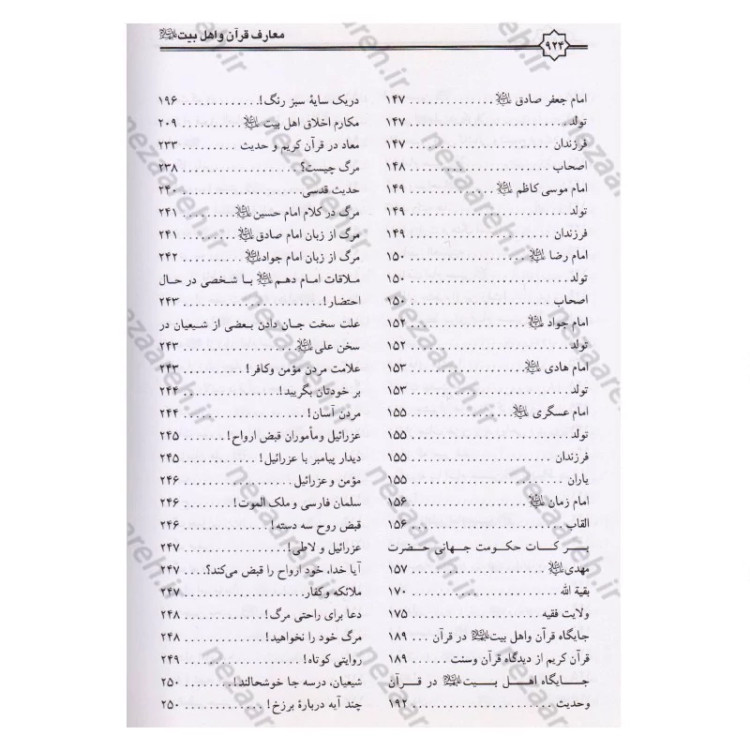 ۹۲۴ معارف قرآن و اهل بیت
امام جعفر صادق ............ ۱۴۷
تولد ............ ۱۴۷
فرزندان ............ ۱۴۷
اصحاب ............ ۱۴۸
امام موسی کاظم ............ ۱۴۹
تولد ............ ۱۴۹
فرزندان ............ ۱۴۹
امام رضا ............ ۱۵۰
تولد ............ ۱۵۰
اصحاب ............ ۱۵۰
امام جواد ............ ۱۵۲
تولد ............ ۱۵۲
امام هادی ............ ۱۵۳
تولد ............ ۱۵۳
امام عسگری ............ ۱۵۵
تولد ............ ۱۵۵
فرزندان ............ ۱۵۵
یاران ............ ۱۵۵
امام زمان ............ ۱۵۶
القاب ............ ۱۵۶
برکات حکومت جهانی حضرت
مهدی ............ ۱۵۷
بقیة الله ............ ۱۷۰
ولایت فقیه ............ ۱۷۵
جایگاه قرآن واهل بیت در قرآن ... ۱۸۹
قرآن کریم از دیدگاه قرآن وسنت ..... ۱۸۹
جایگاه اهل بیت در قرآن
وحدیث ............ ۱۹۲
دریک سایهٔ سبز رنگ! ............ ۱۹۶
مکارم اخلاق اهل بیت ............ ۲۰۹
معاد در قرآن کریم و حدیث ......... ۲۳۳
مرگ چیست؟ ............ ۲۳۸
حدیث قدسی ............ ۲۴۰
مرگ در کلام امام حسین ......... ۲۴۱
مرگ از زبان امام صادق ......... ۲۴۱
مرگ از زبان امام جواد ......... ۲۴۲
ملاقات امام دهم با شخصی در حال
احتضار! ............ ۲۴۳
علت سخت جان دادن بعضی از شیعیان در
سخن علی ............ ۲۴۳
علامت مردن مؤمن وکافر! ......... ۲۴۳
بر خودتان بگریید! ............ ۲۴۴
مردن آسان! ............ ۲۴۴
عزرائیل ومأموران قبض ارواح! ...... ۲۴۵
دیدار پیامبر با عزرائیل! ......... ۲۴۵
مؤمن و عزرائیل ............ ۲۴۶
سلمان فارسی و ملک الموت! ........ ۲۴۶
قبض روح سه دسته! ............ ۲۴۶
عزرائیل و لاطی! ............ ۲۴۷
آیا خدا، خود ارواح را قبض می‌کند؟ .... ۲۴۷
ملائکه وکفار ............ ۲۴۷
دعا برای راحتی مرگ! ............ ۲۴۸
مرگ خود را نخواهید! ............ ۲۴۸
روایتی کوتاه! ............ ۲۴۹
شیعیان، درسه جا خوشحالند! ........ ۲۵۰
چند آیه دربارهٔ برزخ! ............ ۲۵۰
nezaareh.ir